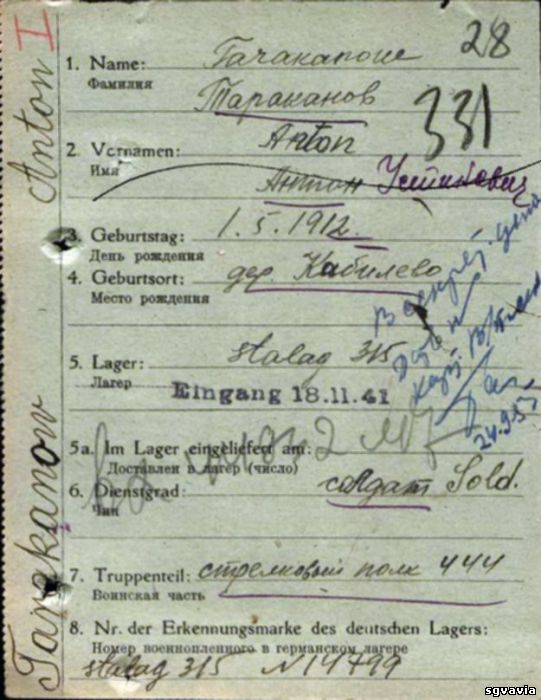 Tarakanow Anton I
28
1. Name:
Фамилия
Тараканов
331
2. Vornamen: Anton
Имя Антон Устинович
3. Geburtstag: 1.5.1912.
День рождения
4. Geburtsort: дер. Кабилево
Место рождения
5. Lager: Stalag 315
Лагер Eingang 18.11.41
24.9.5
5a. Im Lager eingeliefert am:
Доставлен в лагер (число)
6. Dienstgrad: солдат Sold.
Чин
7. Truppenteil: стрелковый полк 444
Воинская часть
8. Nr. der Erkennungsmarke des deutschen Lagers:
Номер военнопленного в германском лагере
Stalag 315 N 14799
sgvavia